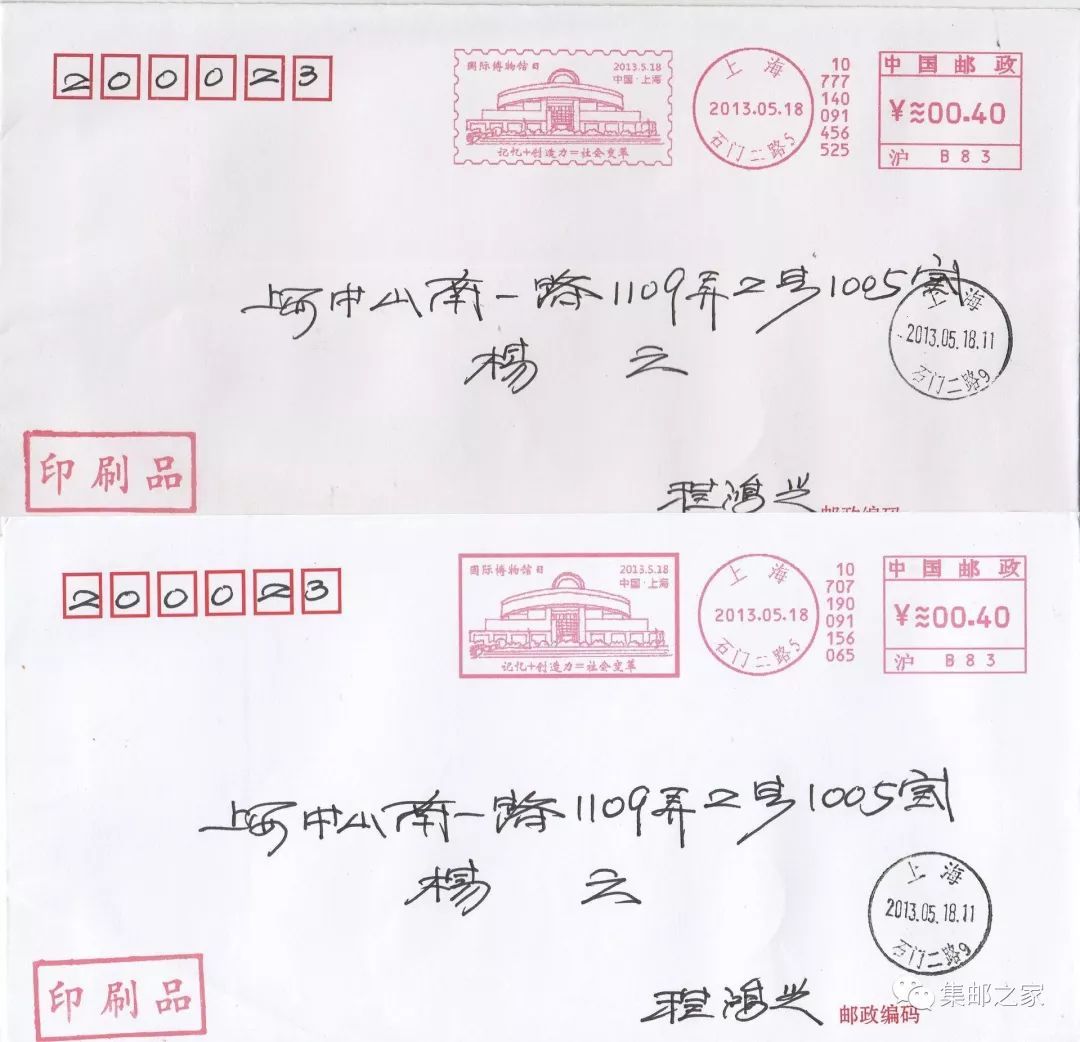 200023
国际博物馆日
2013.5.18
中国·上海
记忆+创造力=社会变革
上海
2013.05.18
石门二路5
10
777
140
091
456
525
中国邮政
¥≈00.40
沪 B83
上海中山南一路1109弄2号1005室
上海
2013.05.18.11
石门二路9
杨 云
印刷品
程鸿兴
邮政编码
200023
国际博物馆日
2013.5.18
中国·上海
记忆+创造力=社会变革
上海
2013.05.18
石门二路5
10
707
190
091
156
065
中国邮政
¥≈00.40
沪 B83
上海中山南一路1109弄2号1005室
杨 云
上海
2013.05.18.11
石门二路9
印刷品
程鸿兴
邮政编码
集邮之家